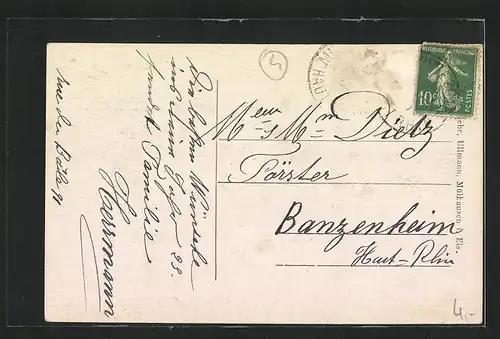 Die besten Wünsche
ins neue Jahr 22.
sendet Familie
Herrmann
5
Meur & Mme Dietz
Förster
Banzenheim
Haut-Rhin
REPUBLIQUE FRANCAISE
10c
POSTES
Ullmann, Mülhausen i. Els.
4,-